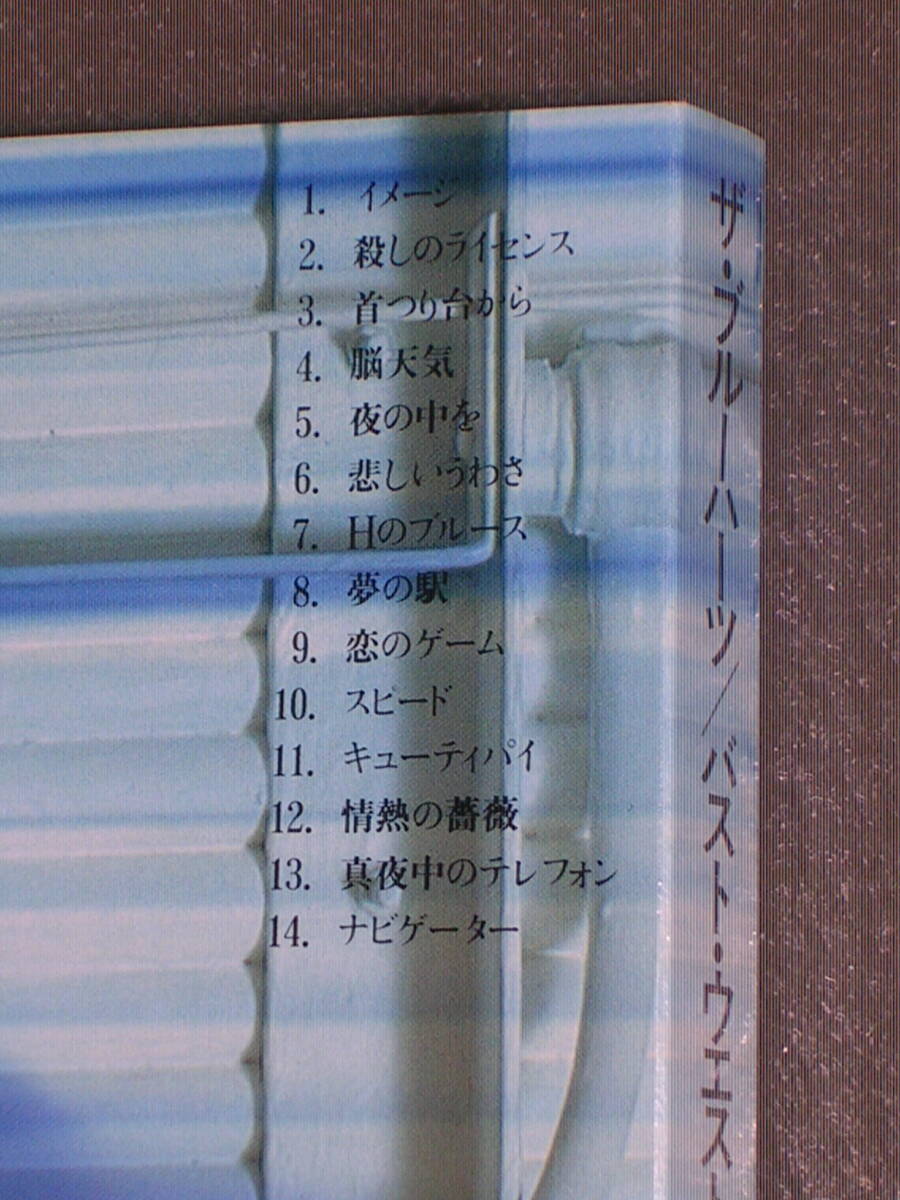 1. イメージ
2. 殺しのライセンス
3. 首つり台から
4. 脳天気
5. 夜の中を
6. 悲しいうわさ
7. Hのブルース
8. 夢の駅
9. 恋のゲーム
10. スピード
11. キューティパイ
12. 情熱の薔薇
13. 真夜中のテレフォン
14. ナビゲーター
ザ・ブルーハーツ/バスト・ウエスト